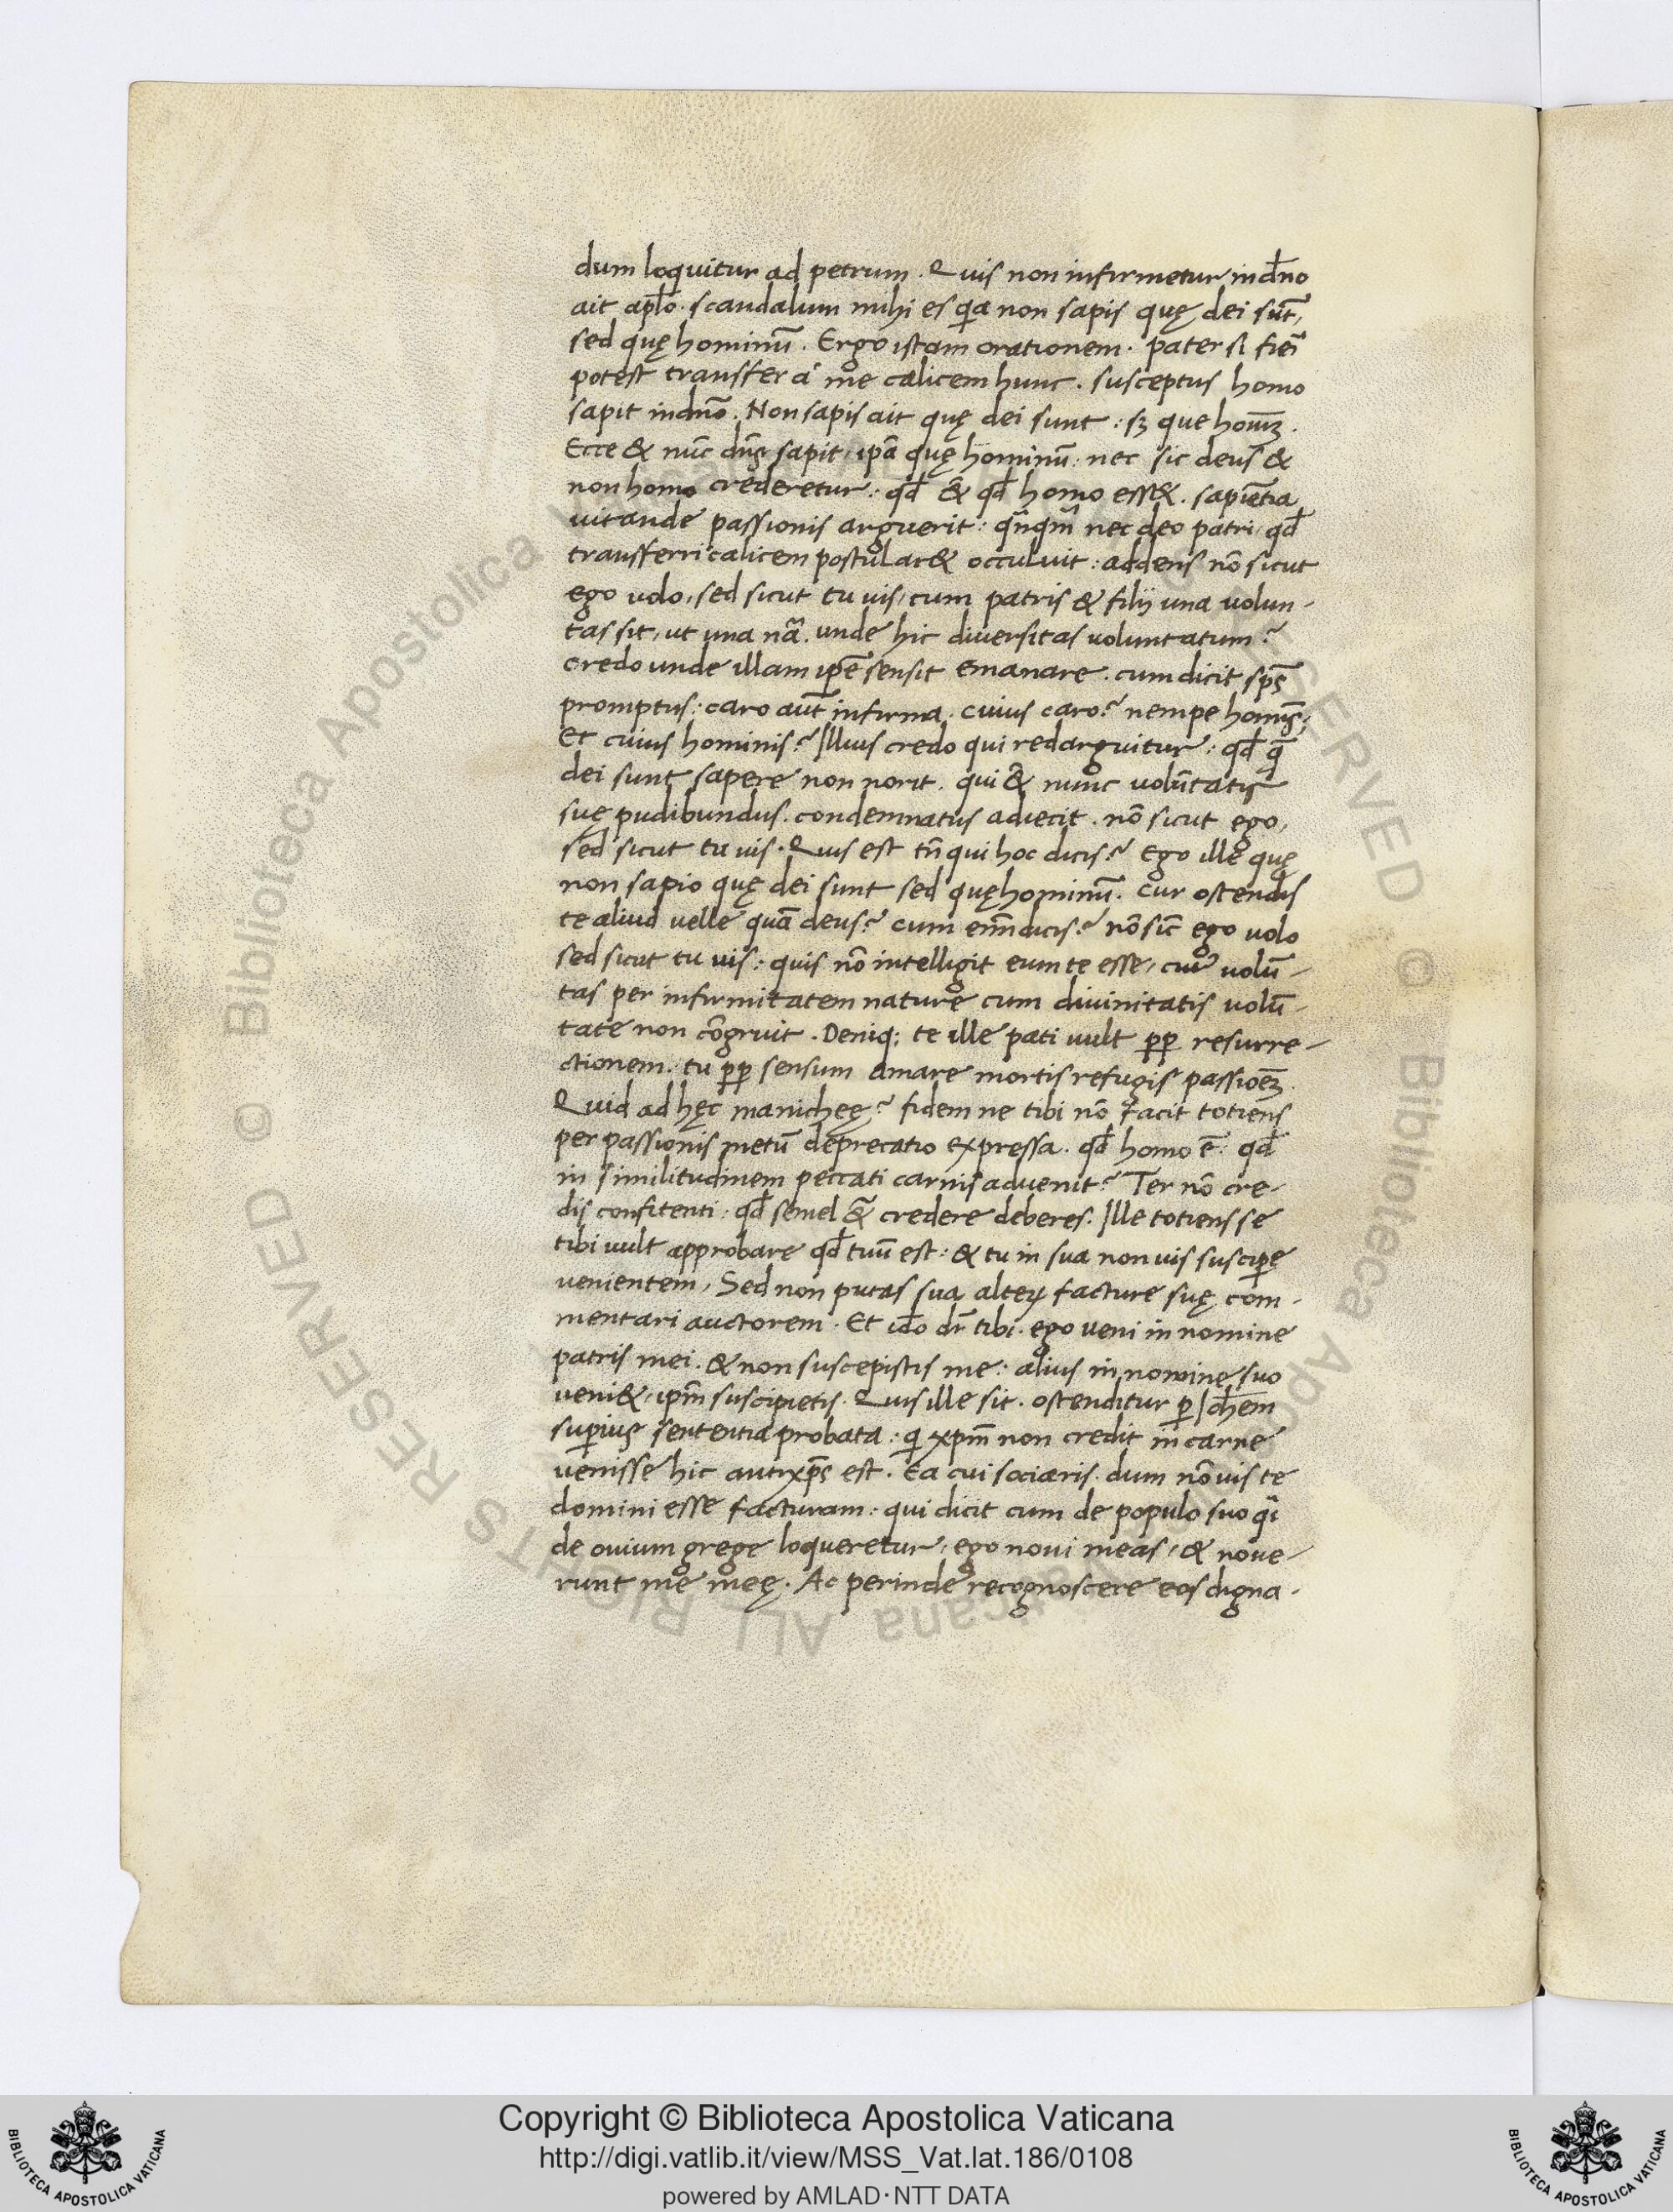 dum loquitur ad petrum. Quis non infirmetur in dn̄o
ait apło. scandalum mihi es qia non sapis quę dei sūt,
sed quę hominū. Ergo istam orationem. pater si fieri
potest transfer a me calicem hunc. susceptus homo
sapit in dn̄o. Non sapis ait quę dei sunt: sꝫ que hoīuꝫ.
Ecce & nūc dn̄s sapit, ip̄a quę hominū: nec sic deus &
non homo crederetur: qđ & qđ homo ess&. sapiētia
uitande passionis arguerit: qn̄qm̄ nec deo patri, qđ
transferri calicem postular& occuluit: addens nō sicut
ego volo, sed sicut tu uis, cum patris & filij una uolun-
tas sit, ut una nā. unde hic diuersitas uoluntatum?
credo unde illam ip̄e sensit emanare. cum dicit sp̄s
promptus: caro aūt infirma. cuius caro? nempe homīs;
Et cuius hominis? Illius credo qui redarguitur: qđ q̄
dei sunt sapere non norit. qui & nunc uolūtatis
suę pudibundus. condemnatus adiecit. nō sicut ego,
sed sicut tu uis. Quis est tn̄ qui hoc dicis? Ego ille quę
non sapio quę dei sunt sed quę hominū. cur ostendis
te aliud uelle quā deus? cum enim dicis? nō sic̄ ego uolo
sed sicut tu uis: quis nō intelligit eum te esse, cui9 uolū-
tas per infirmitatem nature cum diuinitatis uolū-
tate non cōgruit. Deniq; te ille pati uult pp̄ resurre-
ctionem. tu pp̄ sensum amare mortis refugis passioēꝫ.
Quid ad hęc manicheę? fidem ne tibi nō facit totiens
per passionis metū deprecatio expressa. qđ homo ē: qđ
in similitudinem peccati carnis aduenit? Ter nō cre-
dis confitenti: qđ semel & credere deberes. Ille totiens se
tibi uult approbare qđ tuū est: & tu in sua non uis suscipe
uenientem, Sed non putas sua alteꝝ facture suę com-
mentari auctorem. Et ido dr̄ tibi. ego ueni in nomine
patris mei. & non suscepistis me: alius in nomine suo
ueni&, ipm̄ suscipietis. Quis ille sit. ostenditur p Ioh̄em
superius sententia probata: qi xpm̄ non credit in carne
uenisse hic antixp̄s est. Ea cui sociaris. dum nō uis te
domini esse facturam: qui dicit cum de populo suo qi
de ouium grege loqueretur, ego noui meas, & noue-
runt me meę. Ac perinde recognoscere eos digna-
Copyright © Biblioteca Apostolica Vaticana
http://digi.vatlib.it/view/MSS_Vat.lat.186/0108
powered by AMLAD·NTT DATA